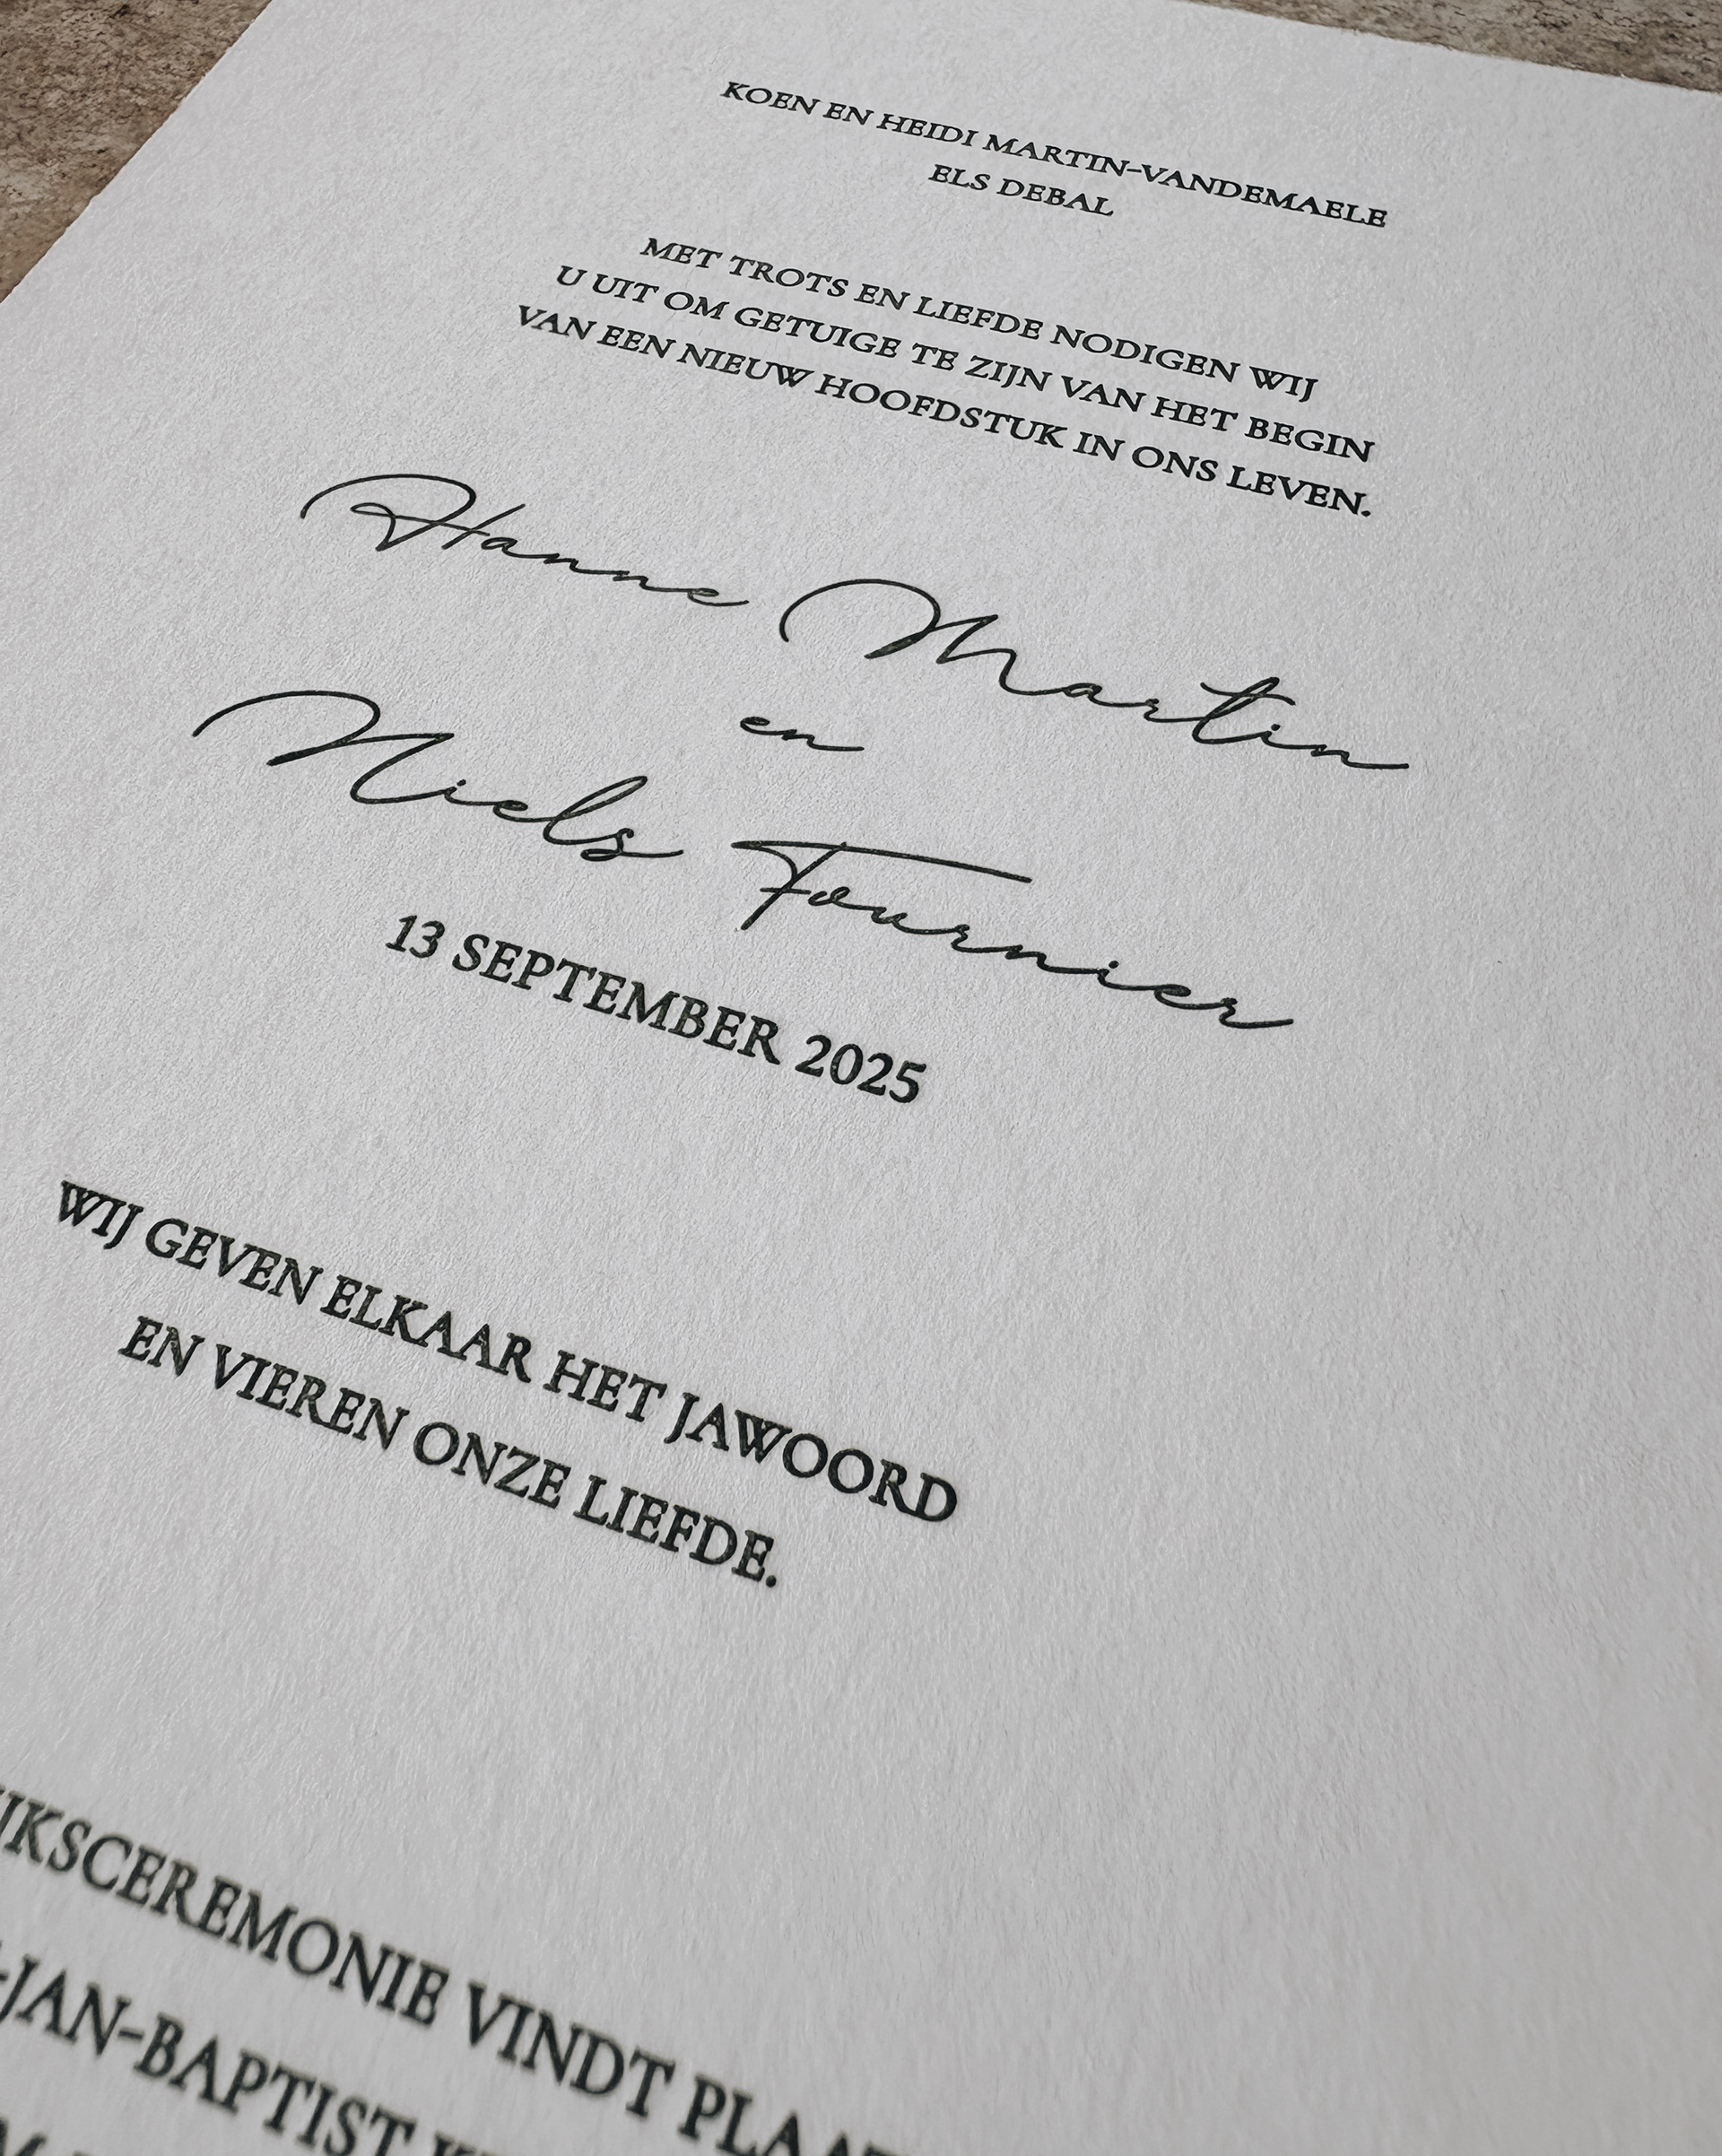 KOEN EN HEIDI MARTIN-VANDEMAELE
ELS DEBAL
MET TROTS EN LIEFDE NODIGEN WIJ
U UIT OM GETUIGE TE ZIJN VAN HET BEGIN
VAN EEN NIEUW HOOFDSTUK IN ONS LEVEN.
Hanne Martin
en
Niels Fournier
13 SEPTEMBER 2025
WIJ GEVEN ELKAAR HET JAWOORD
EN VIEREN ONZE LIEFDE.
IJKSCEREMONIE VINDT
-JAN-BAPTIST